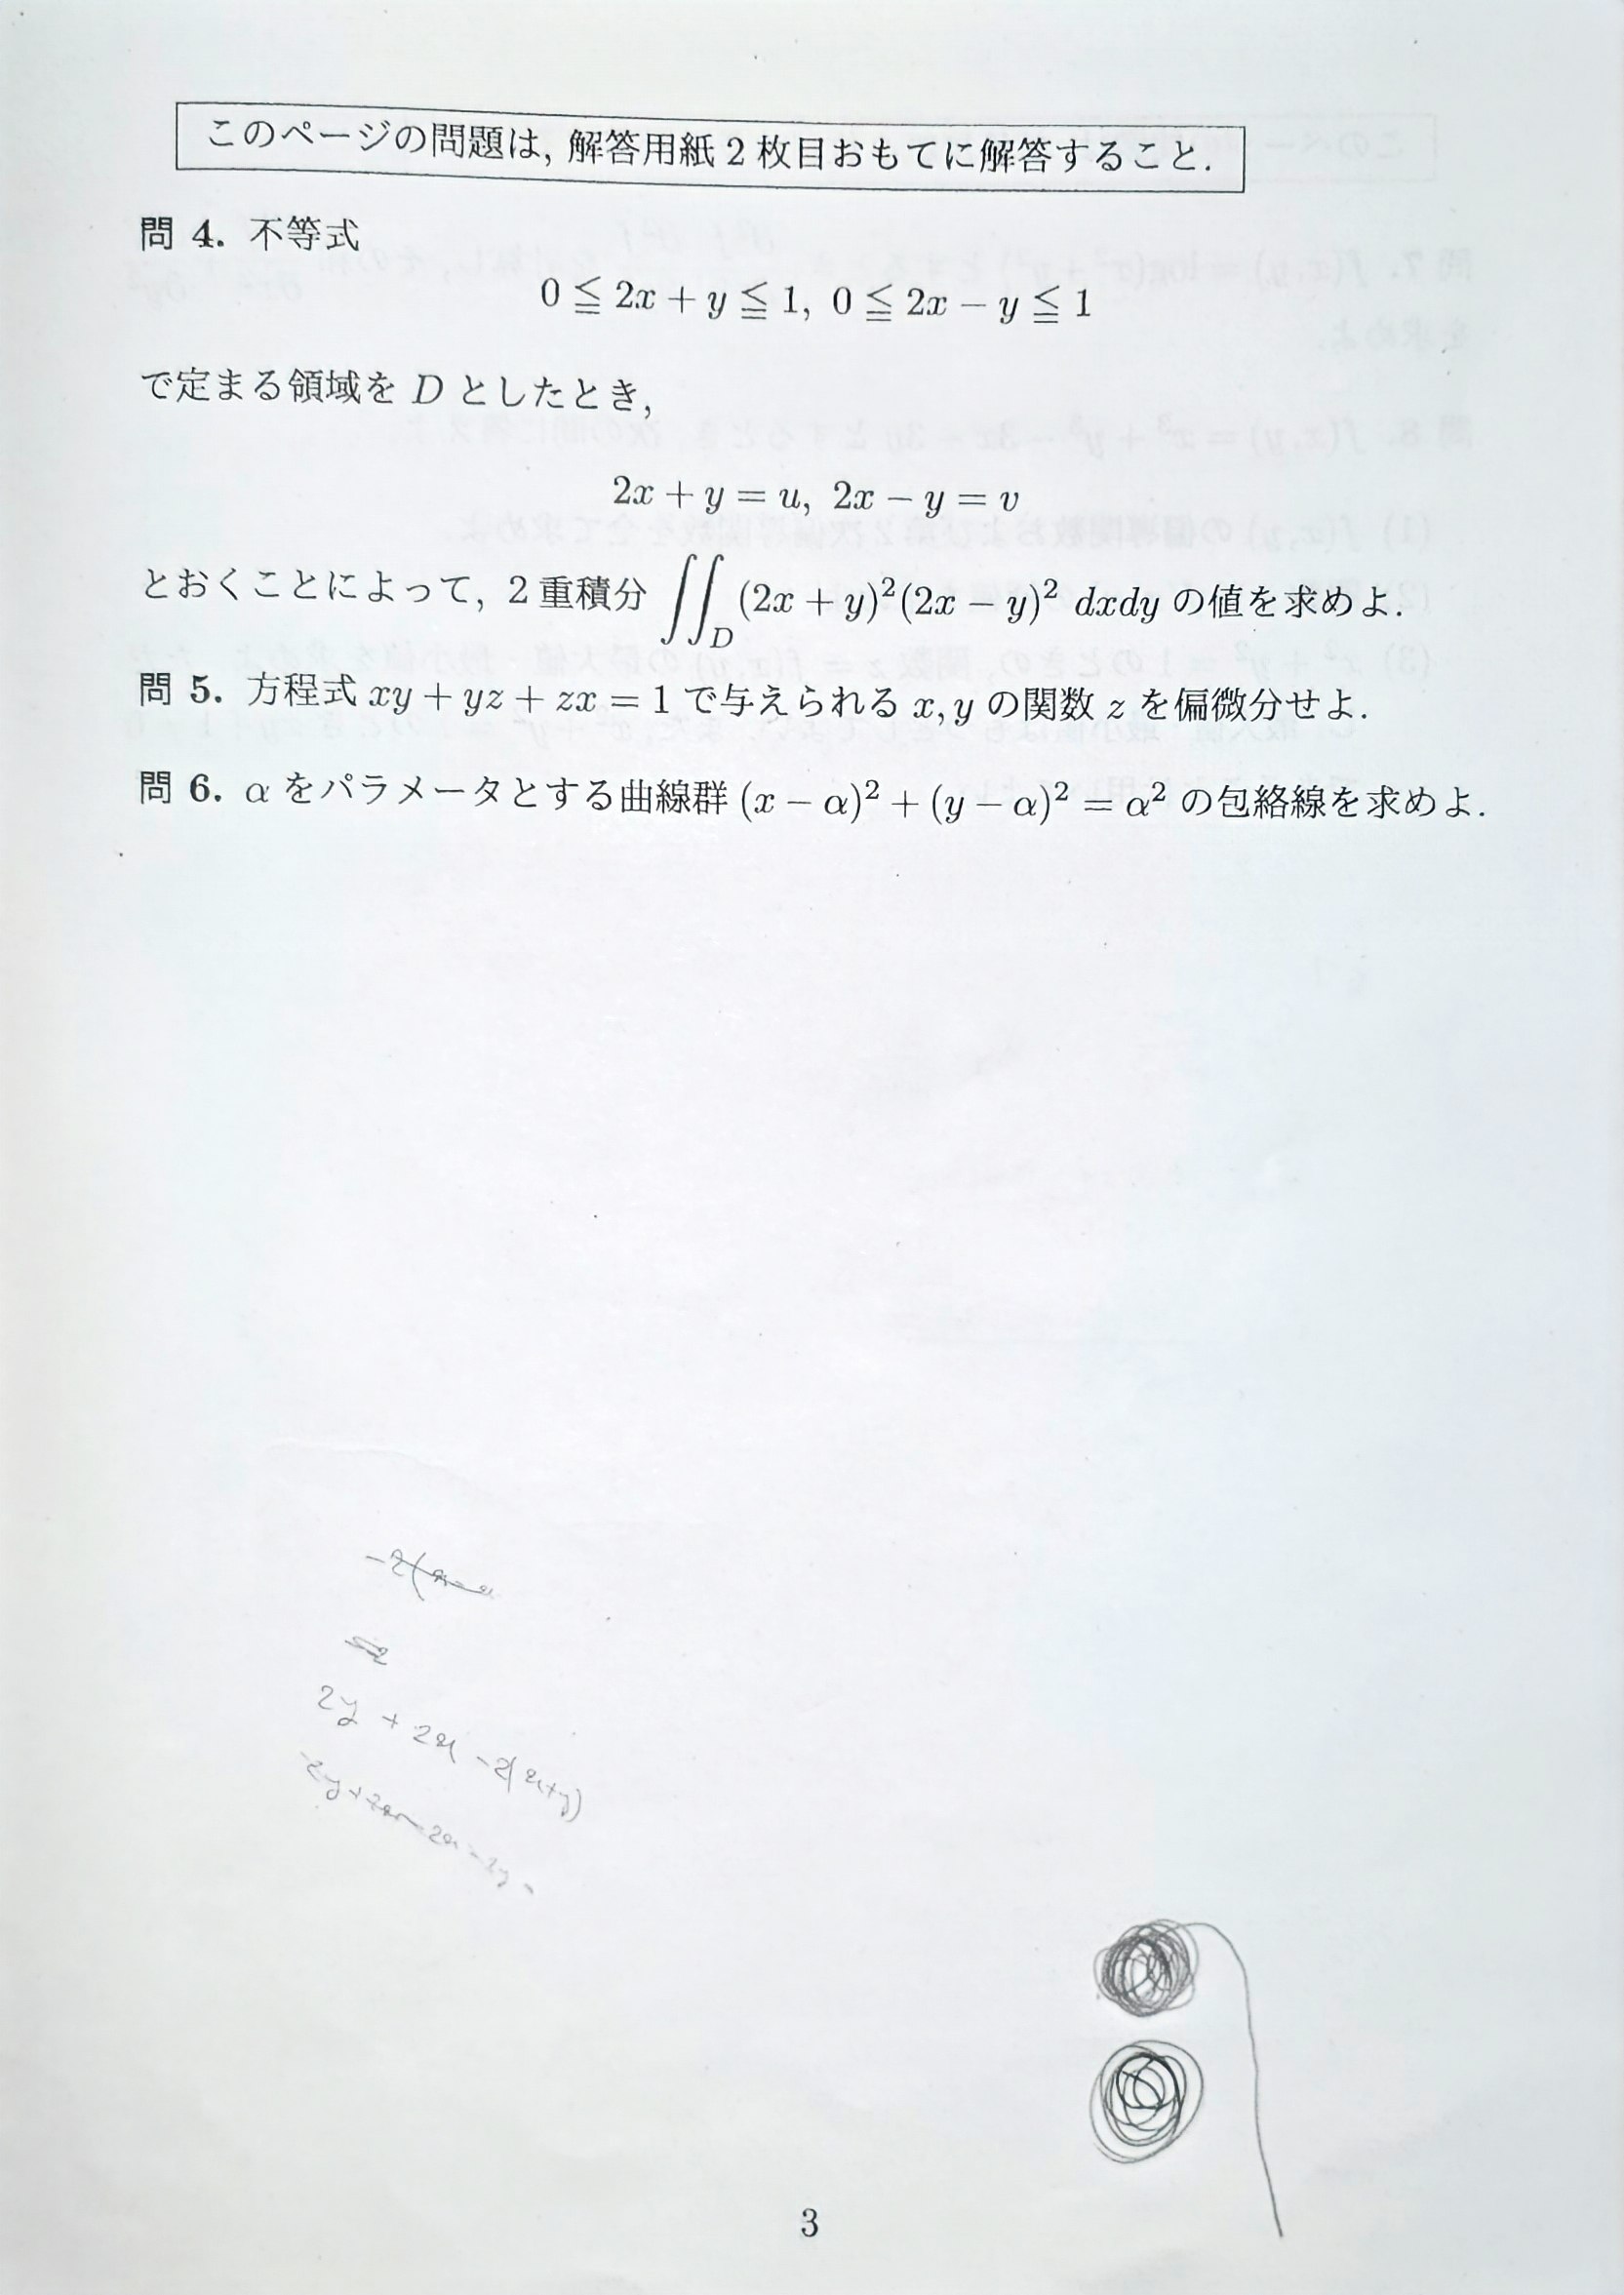 このページの問題は, 解答用紙 2 枚目おもてに解答すること.
問 4. 不等式
0 ≦ 2x + y ≦ 1, 0 ≦ 2x − y ≦ 1
で定まる領域を D としたとき,
2x + y = u, 2x − y = v
とおくことによって, 2 重積分 ∬_D (2x + y)² (2x − y)² dxdy の値を求めよ.
問 5. 方程式 xy + yz + zx = 1 で与えられる x, y の関数 z を偏微分せよ.
問 6. α をパラメータとする曲線群 (x − α)² + (y − α)² = α² の包絡線を求めよ.
2y + 2x − 2(x+y)
3